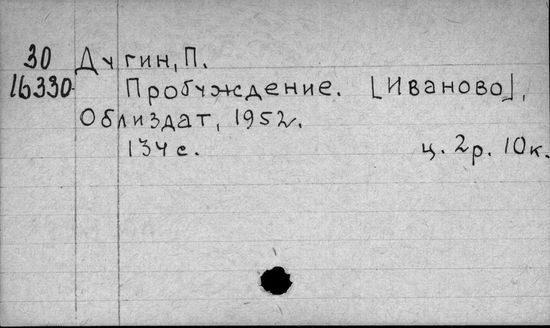 30 Дугин, П.
16330 Пробуждение. [Иваново],
Облиздат, 1952.
134 с. ц. 2р. 10к.